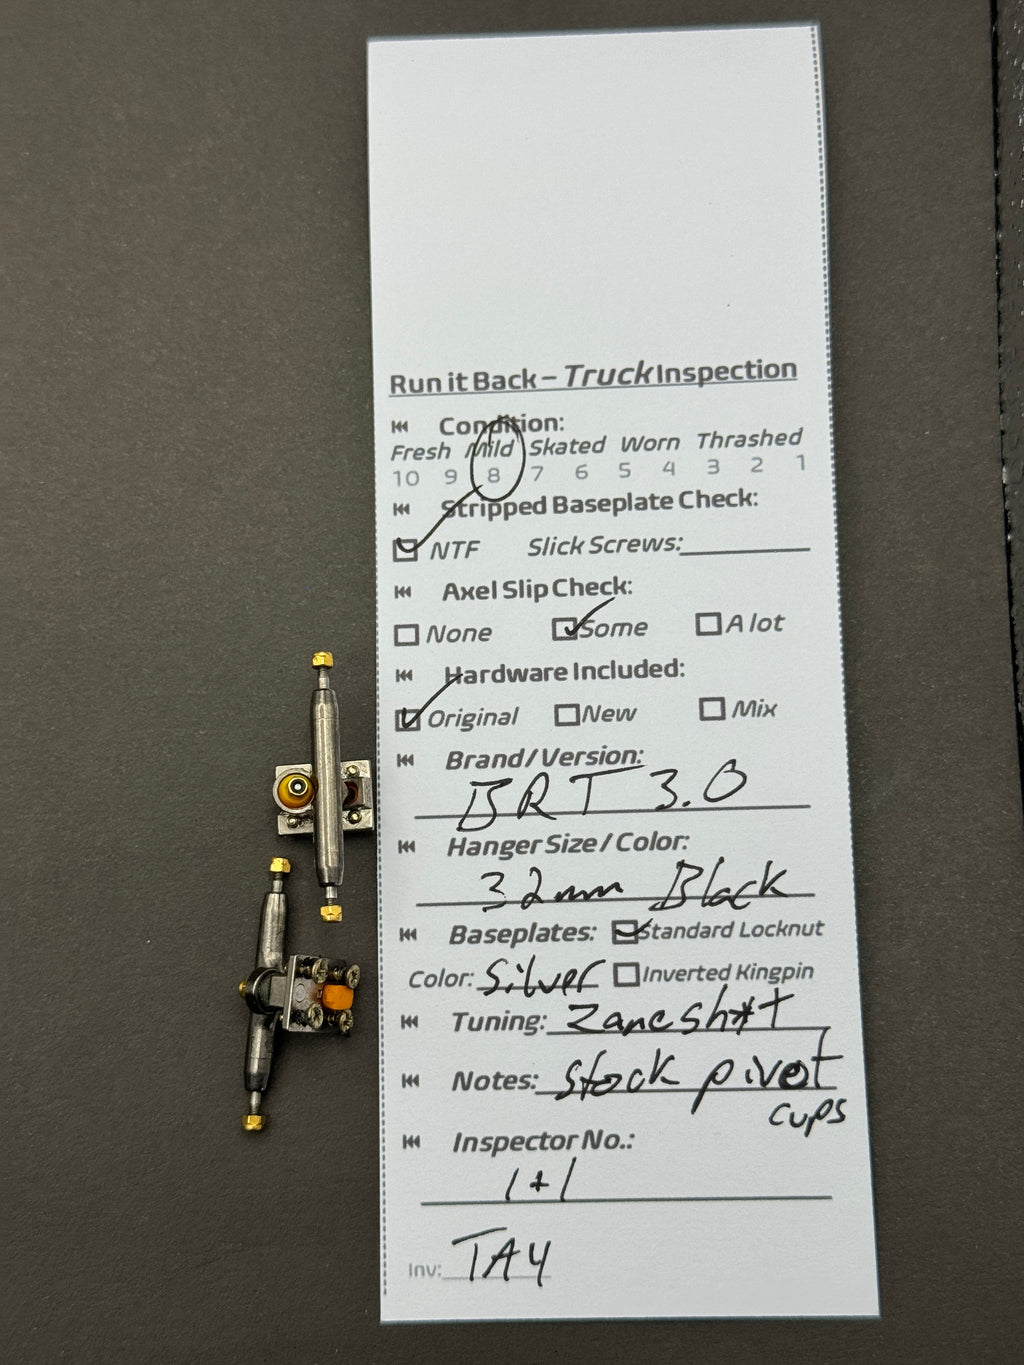 Run it Back – Truck Inspection
Condition:
Fresh Mild Skated Worn Thrashed
10 9 8 7 6 5 4 3 2 1
Stripped Baseplate Check:
NTF Slick Screws:
Axel Slip Check:
None Some A lot
Hardware Included:
Original New Mix
Brand/Version:
BRT 3.0
Hanger Size/Color:
32mm Black
Baseplates: Standard Locknut
Color: Silver Inverted Kingpin
Tuning: Zane sh*t
Notes: Stock pivot
cups
Inspector No.:
1+1
Inv: TA4